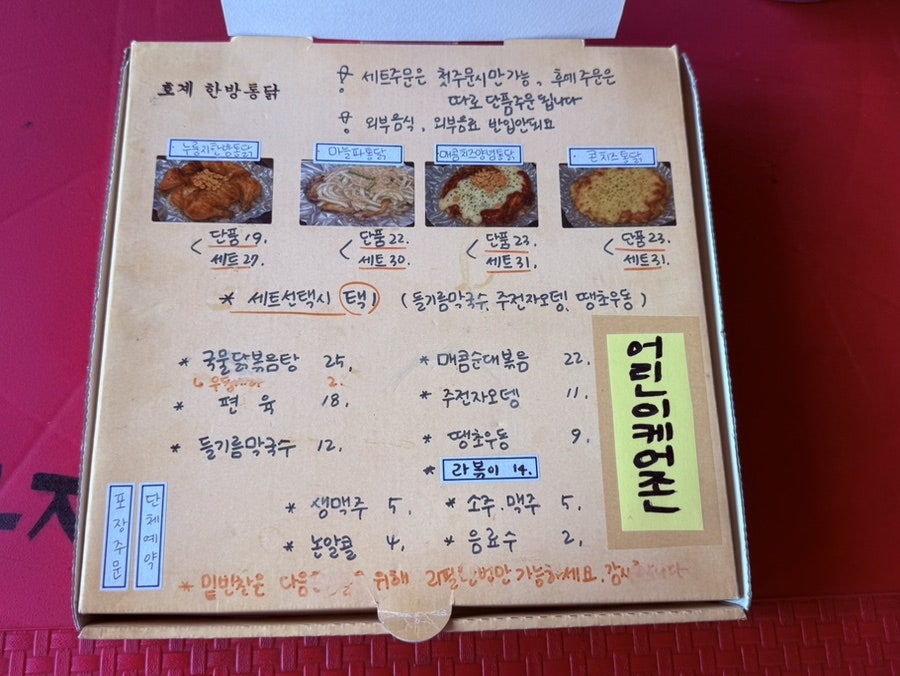 호계 한방통닭
세트주문은 첫주문시만 가능, 후에 주문은
따로 단품주문 됩니다
외부음식, 외부음료 반입안되요
마늘파통닭
매콤치즈양념통닭
콘치즈통닭
단품 19.
세트 27.
단품 22.
세트 30.
단품 23.
세트 31.
단품 23.
세트 31.
* 세트선택시 택1 (들기름막국수, 주전자오뎅, 땡초우동)
* 국물닭볶음탕 25,
2.
* 편육 18,
* 들기름막국수 12.
* 매콤순대볶음 22.
* 주전자오뎅 11.
* 땡초우동 9.
* 라볶이 14.
* 생맥주 5,
* 논알콜 4,
* 소주.맥주 5,
* 음료수 2,
어린이케어존
포장주문
단체예약
* 밑반찬은 위해 리필 한번만 가능하세요.